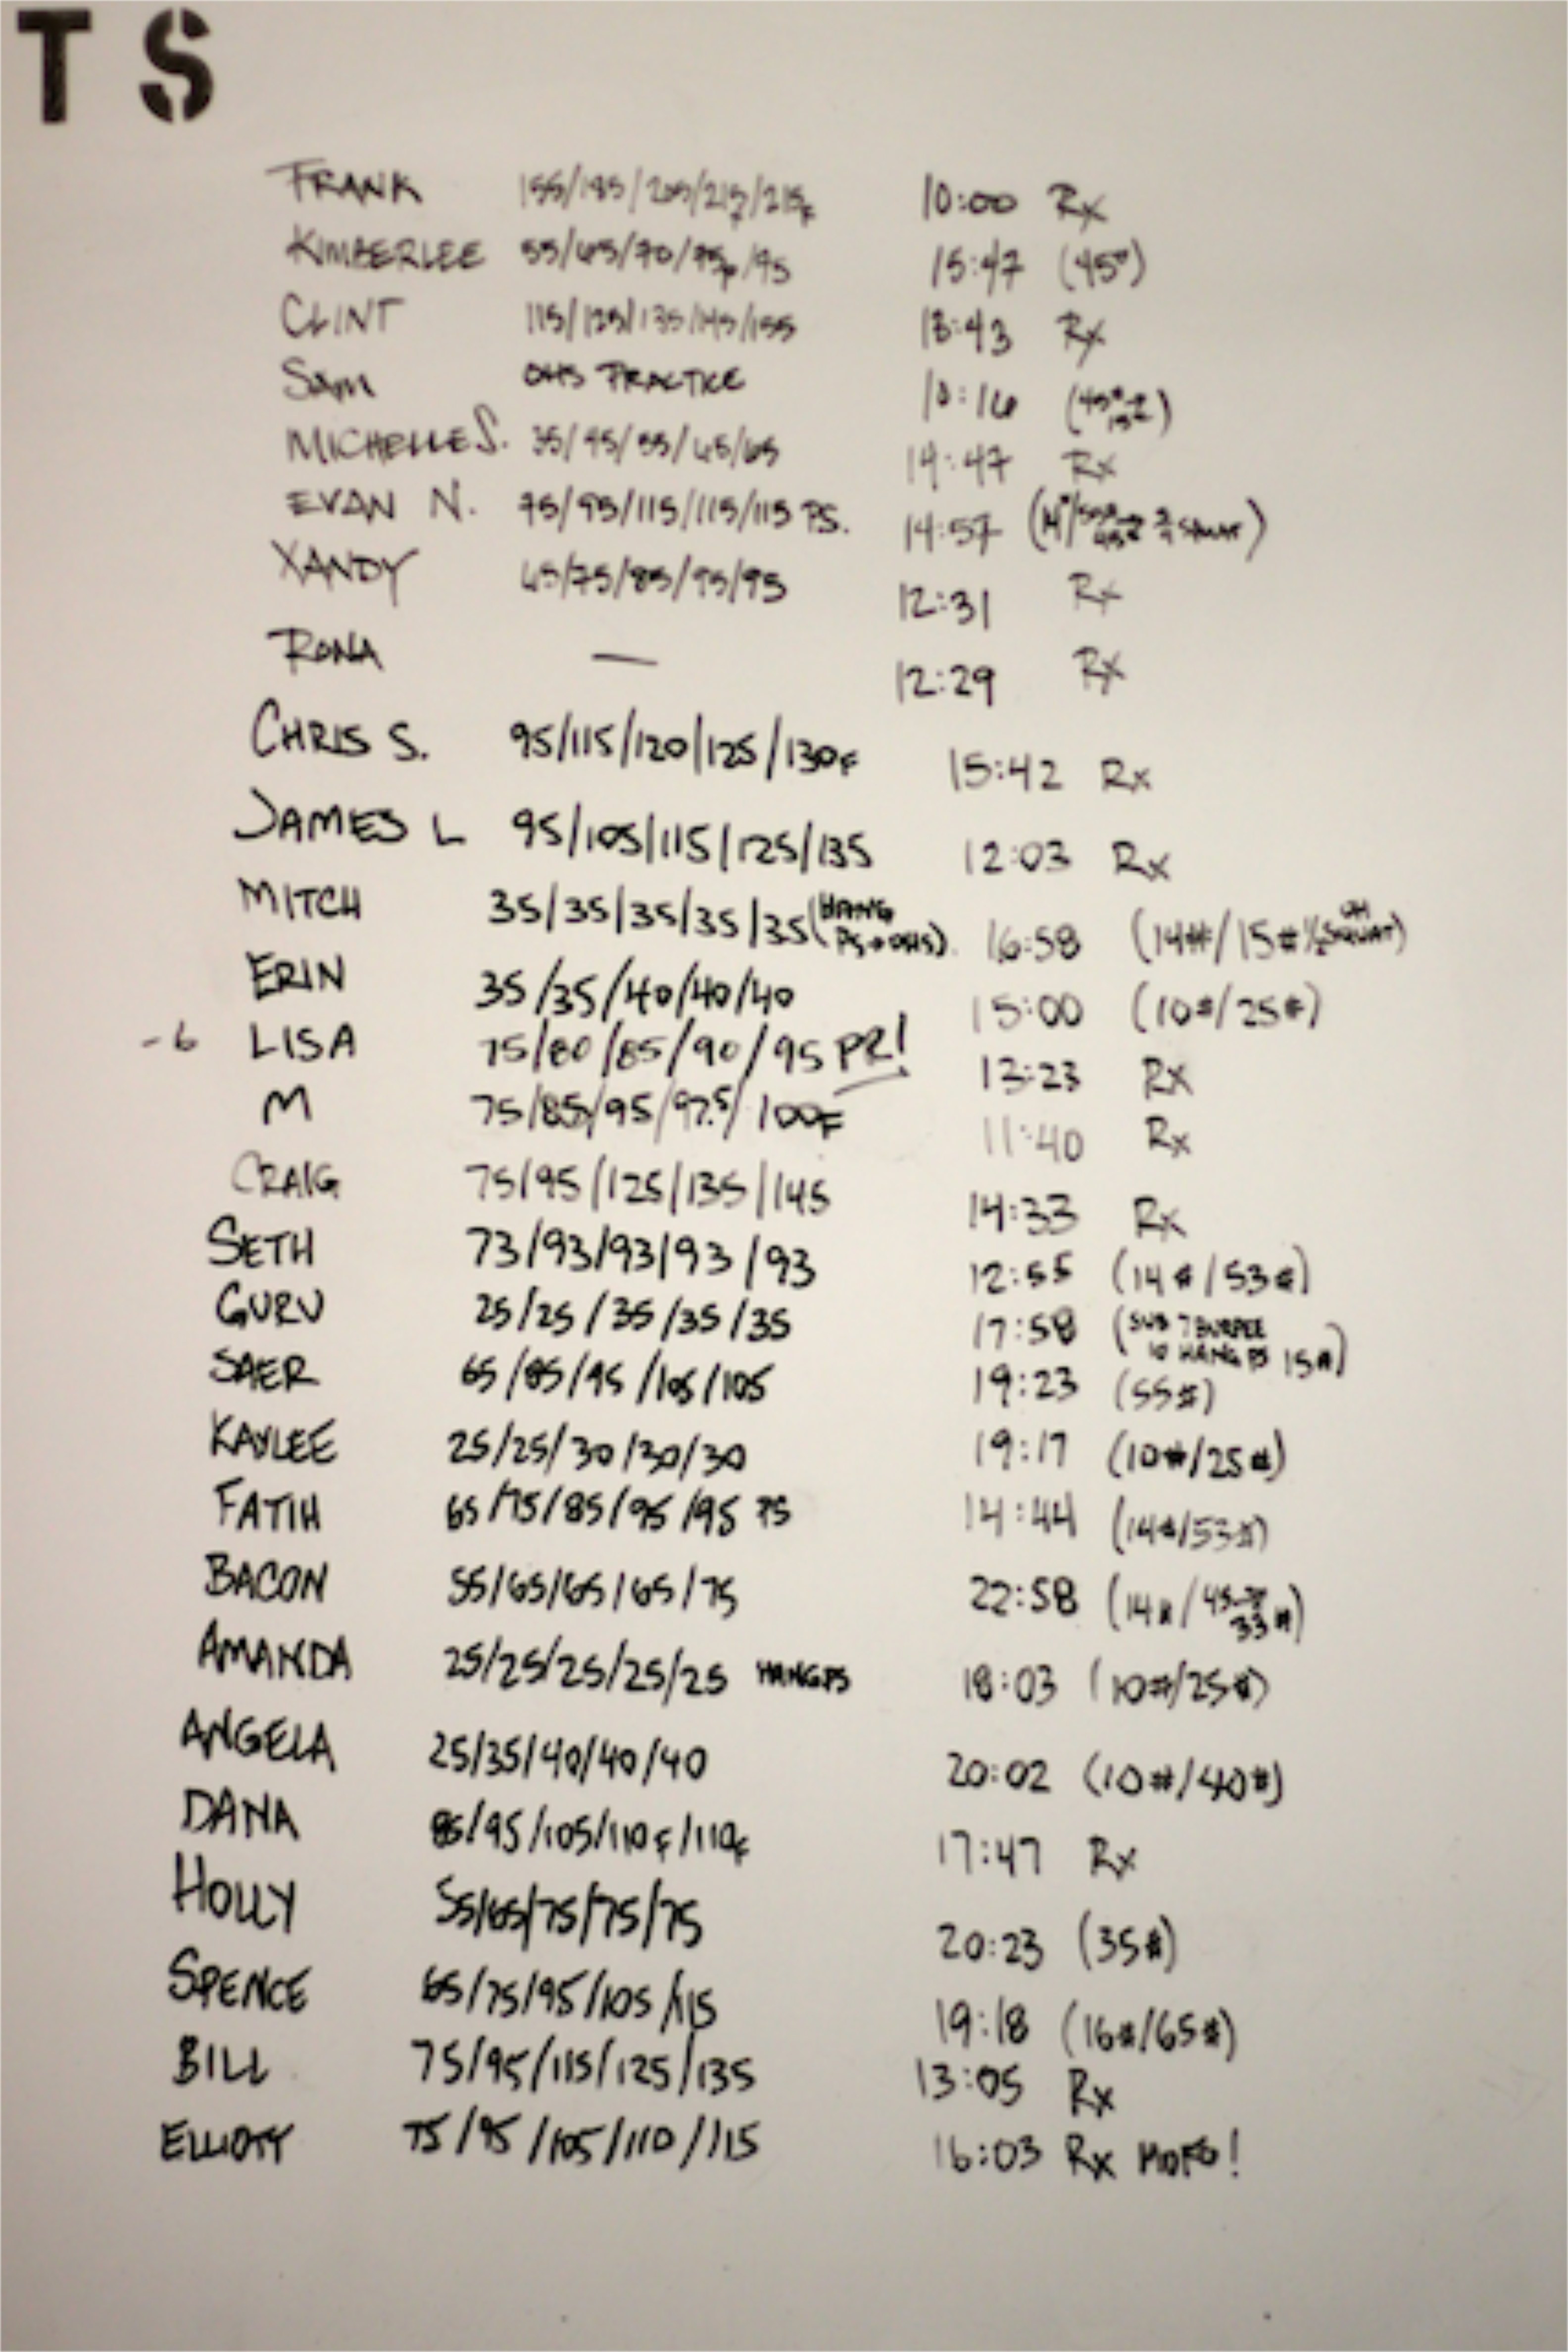 T S
FRANK 155/185/205/215F/215F 10:00 Rx
KIMBERLEE 55/65/70/75F/95 15:47 (45#)
CLINT 115/125/135/145/155 13:43 Rx
SAM OHS PRACTICE 10:16
MICHELLE S. 35/45/55/65/65 14:47 Rx
EVAN N. 75/95/115/115/115 PS. 14:57
XANDY 65/75/85/95/95 12:31 Rx
RONA — 12:29 Rx
CHRIS S. 95/115/120/125/130F 15:42 Rx
JAMES L 95/105/115/125/135 12:03 Rx
MITCH 35/35/35/35/35 (HANG PS→OHS) 16:58 (14#/15# 1/2 OH SQUAT)
ERIN 35/35/40/40/40 15:00 (10#/25#)
-6 LISA 75/80/85/90/95 PR! 13:23 Rx
M 75/85/95/97.5/100F 11:40 Rx
CRAIG 75/95/125/135/145 14:33 Rx
SETH 73/93/93/93/93 12:55 (14#/53#)
GURU 25/25/35/35/35 17:58 (SUB 7 BURPEE 10 HANG PS 15#)
SAER 65/85/95/105/105 19:23 (55#)
KAYLEE 25/25/30/30/30 19:17 (10#/25#)
FATIH 65/75/85/95/95 PS 14:44 (14#/53#)
BACON 55/65/65/65/75 22:58 (14#/45→33#)
AMANDA 25/25/25/25/25 HANG PS 18:03 (10#/25#)
ANGELA 25/35/40/40/40 20:02 (10#/40#)
DANA 85/95/105/110F/110F 17:47 Rx
HOLLY 55/65/75/75/75 20:23 (35#)
SPENCE 65/75/95/105/115 19:18 (16#/65#)
BILL 75/95/115/125/135 13:05 Rx
ELLIOTT 75/95/105/110/115 16:03 Rx MOFO!